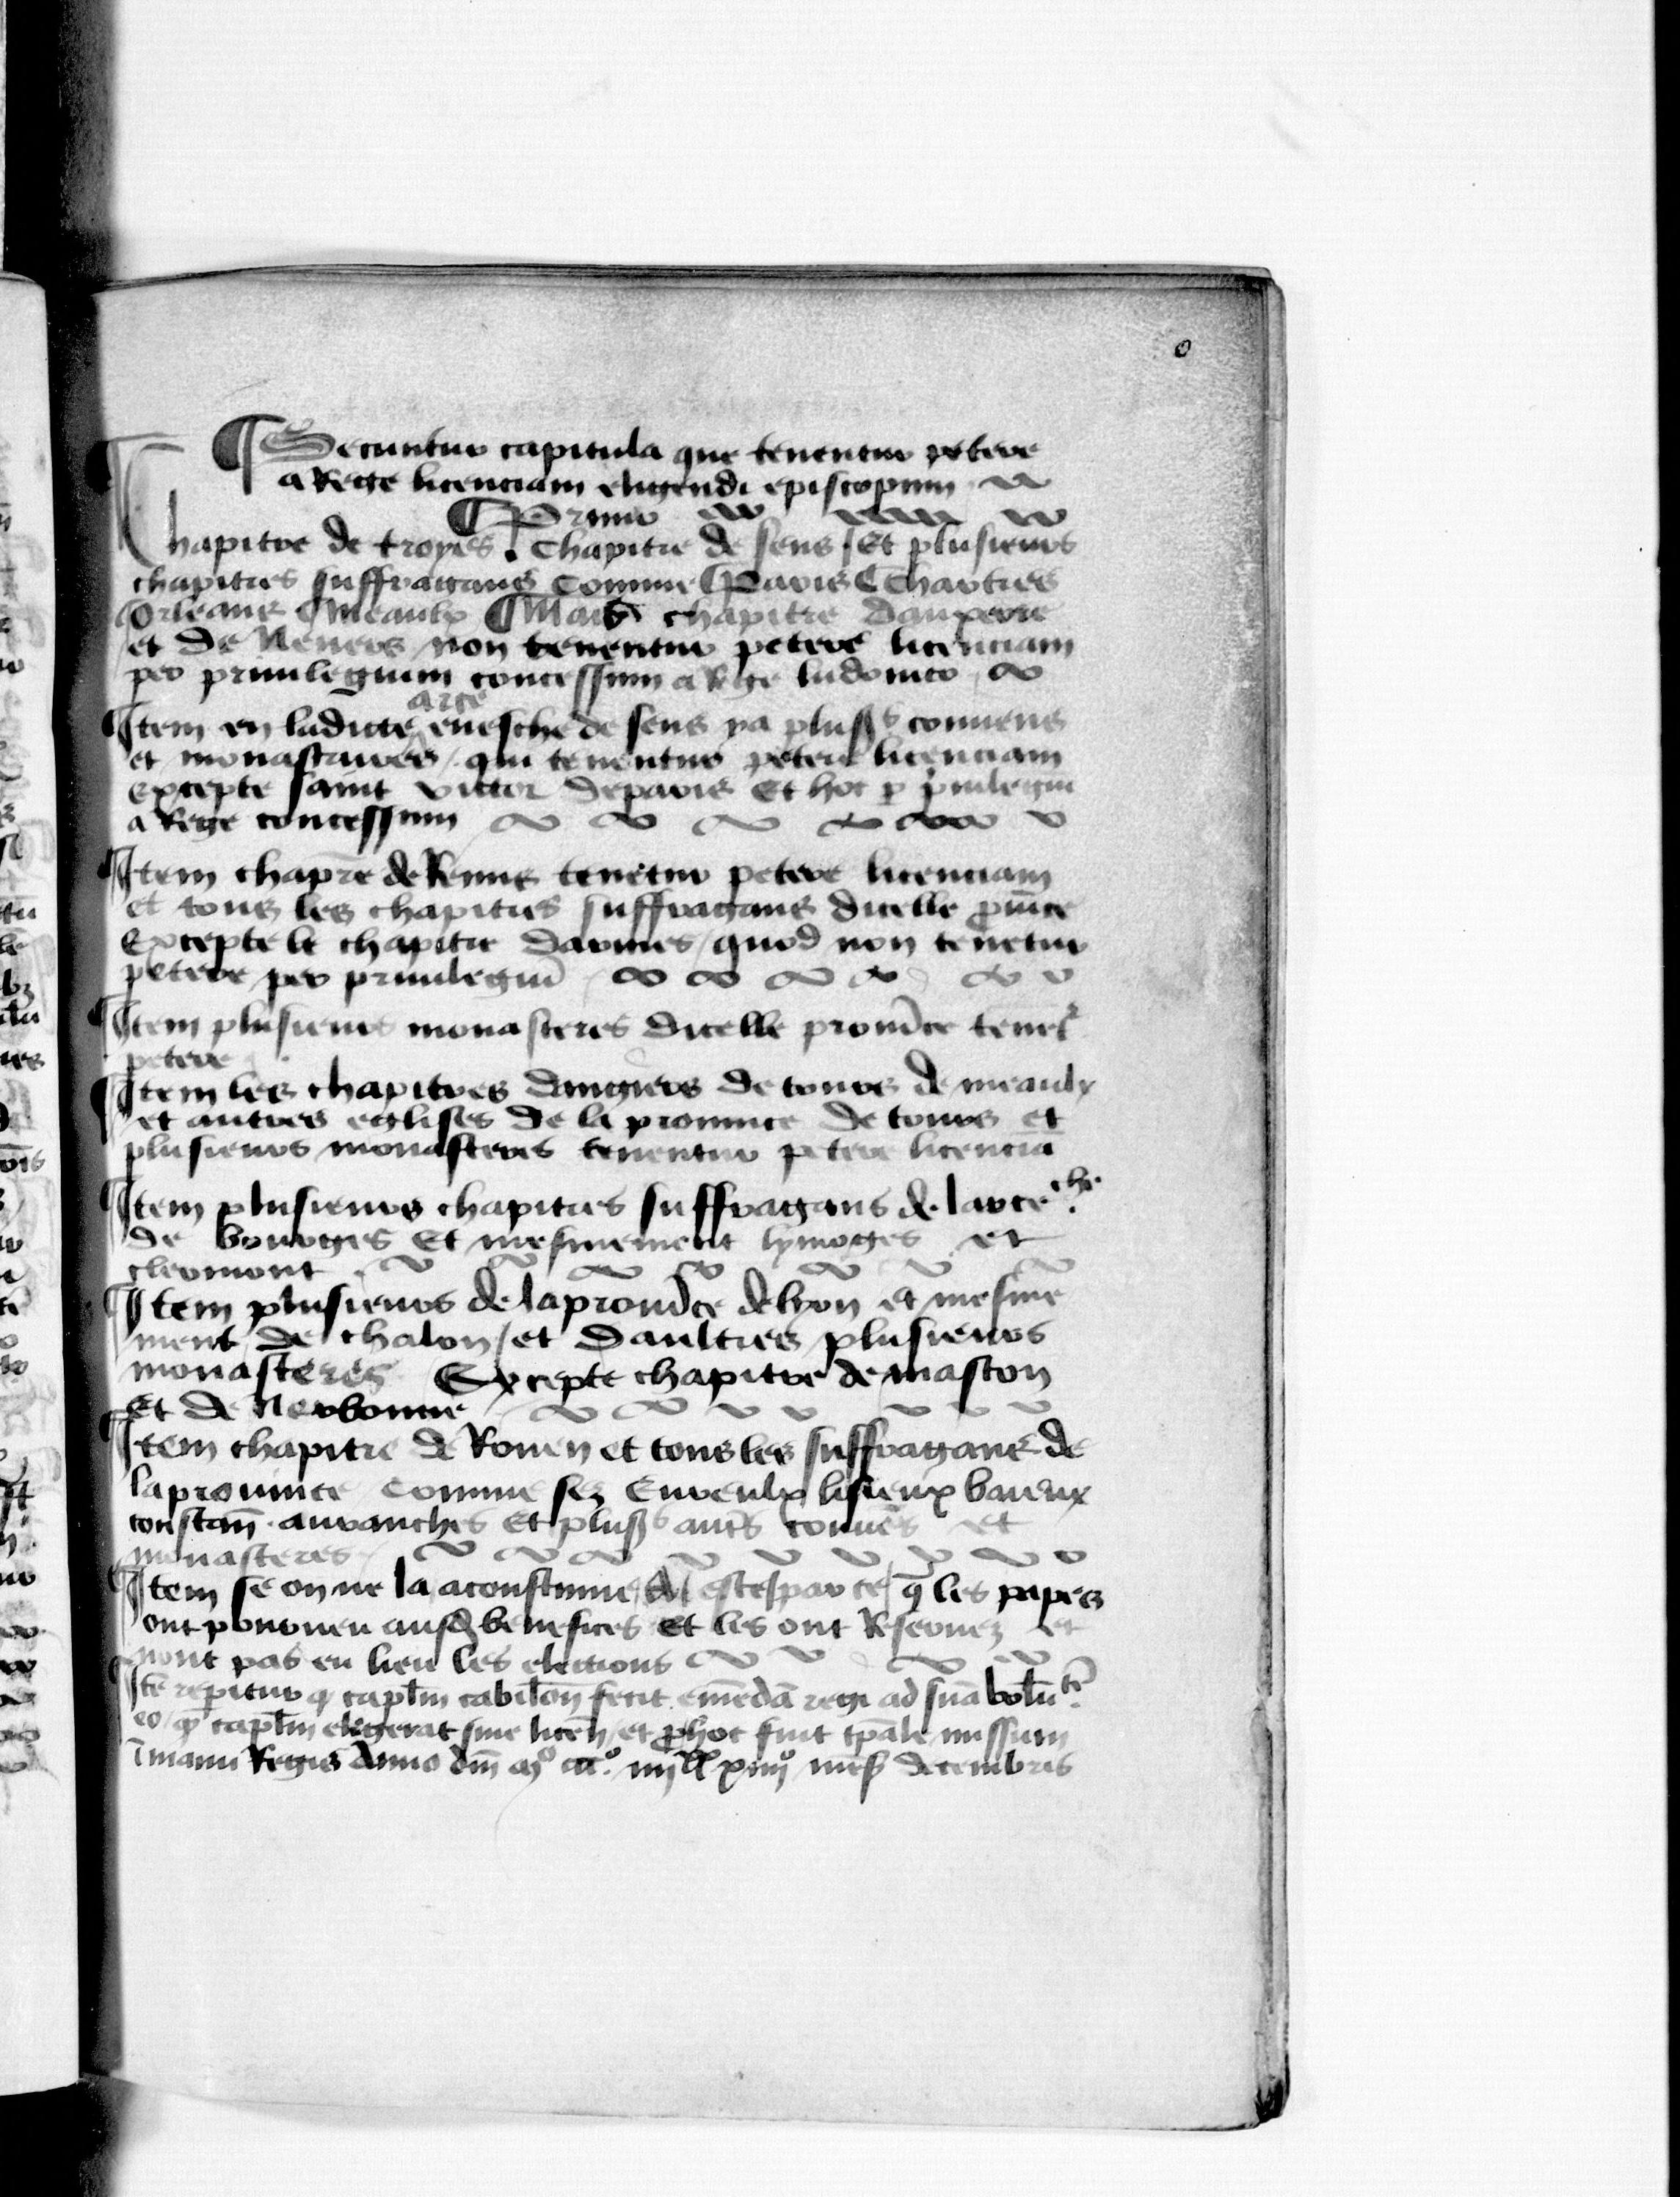 ¶ Secuntur capitula que tenentur petere
a Rege licenciam eligendi episcopum
¶ Primo
Chapitre de troyes . Chapitre de sens . Et plusieurs
chapitres suffragans Comme ¶ Paris ¶ Chartres
Orleans ¶ Meaulx ¶ Mais chapitre dauxerre
et de Nevers non tenentur petere licenciam
per priuilegium concessum a Rege ludouico
Item en ladicte arce euesche de sens ya pluss convens
et monastaires / qui tenentur petere licenciam
Excepte saint victor deparis Et hoc p priuilegiu
a Rege concessum
Item chapre de Reims tenetur petere licenciam
et tous les chapitres suffragans dicelle prouice
Excepte le chapitre darmies / quod non tenetur
petere per priuilegiu
Item plusieurs monasteres dicelle prouice tenet
petere
Item les chapitres dangiers de tours de meaulx
et autres eglises de la prouince de tours et
plusieurs monasteres tenentur petere licencia
Item plusieurs chapitres suffragans de larce che.
de bourges Et mesmement lymoges et
clermont
Item plusieurs de laprouice de lyon et mesme
ment de chalon / et daultres plusieurs
monasteres Excepte chapitre de mascon
Et de Nerbonne
Item chapitre de Rouen et tous les suffragans de
laprouince Comme sez Eureulx lisieux baieux
constan auranches Et pluss autrs conues et
monasteres
Item se on ne la acoustume / A este par ce / q les papes
ont pourueu ausd benefices Et les ont Reseruez et
nont pas eu lieu les elections
Ite repitur q captm cabilon fecit emeda regi ad sua volute
eo / q captm elegerat sine licen / et phoc fuit tpale missum
i manu Regis Anno dm mo cco iiijxx xiiijo mes decembris